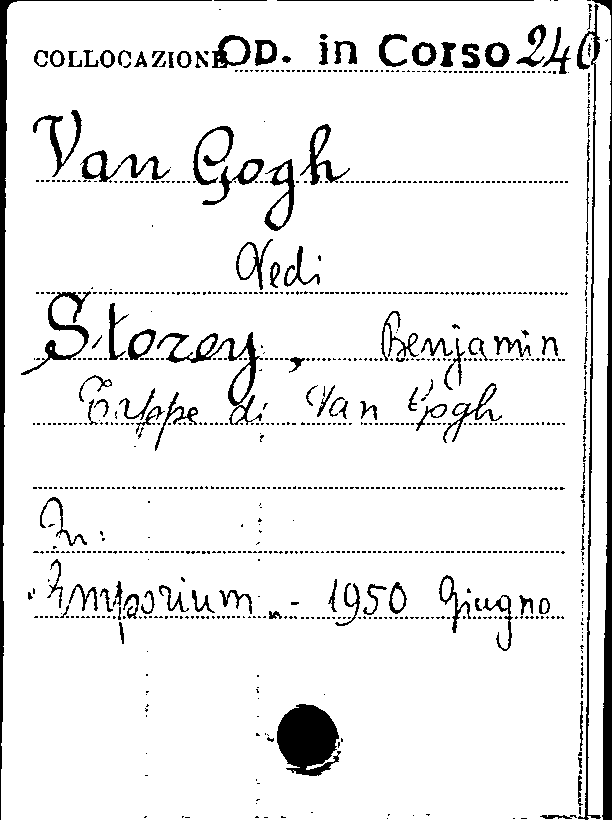 COLLOCAZIONE OD. in Corso 240
Van Gogh
Vedi
Storey, Benjamin
Tappe di Van Gogh
In:
"Emporium" - 1950 Giugno